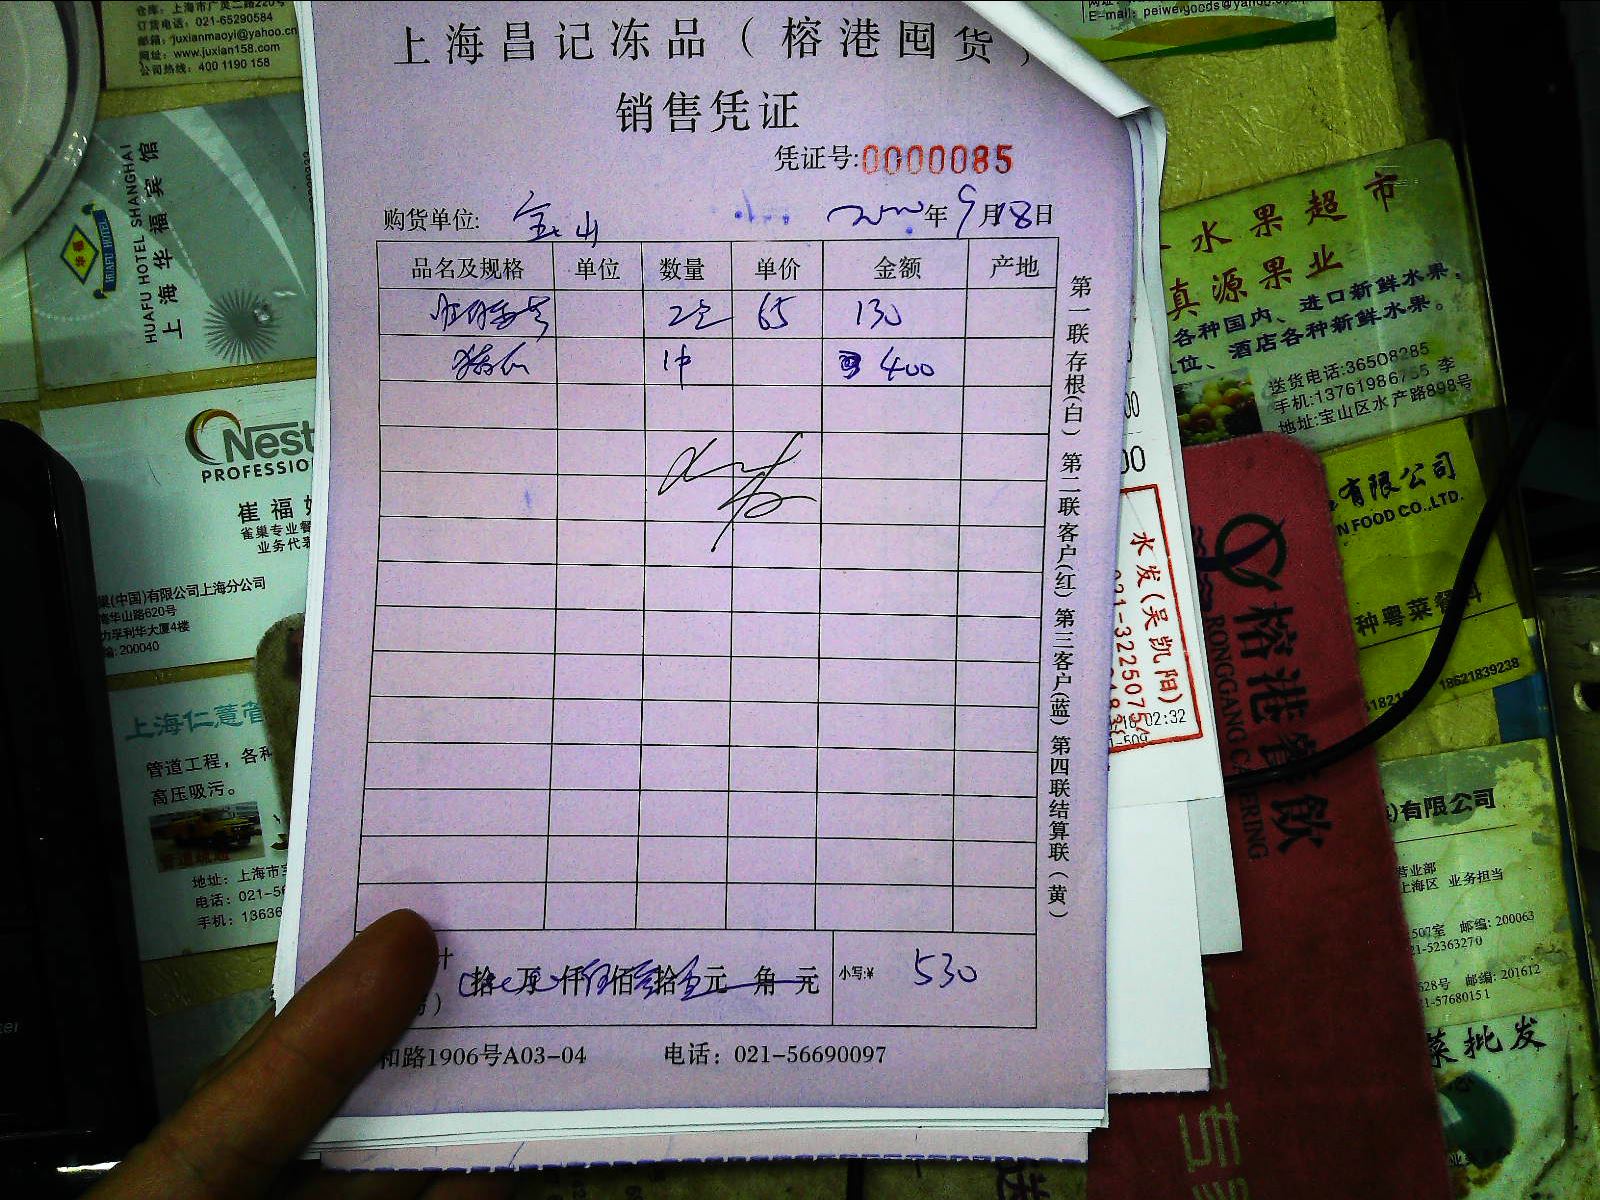 仓库: 上海市广灵二路220号
订货电话: 021-65290584
邮箱: juxianmaoyi@yahoo.cn
网址: www.juxian158.com
公司热线: 400 1190 158
E-mail: peiweiyoods@yahoo
HUAFU HOTEL SHANGHAI
上海华福宾馆
华福
HUAFU HOTEL
Nest
PROFESSIO
崔福
雀巢专业餐
业务代表
巢(中国)有限公司上海分公司
华山路620号
力孚利华大厦4楼
编: 200040
上海仁薏管
管道工程, 各种
高压吸污。
管道疏通
地址: 上海市宝
电话: 021-56
手机: 13636
上海昌记冻品(榕港囤货)
销售凭证
凭证号:0000085
购货单位: 宝山
年 9月18日
品名及规格 单位 数量 单价 金额 产地
65 130
1件 400
第一联存根(白) 第二联客户(红) 第三客户(蓝) 第四联结算联(黄)
计 拾 万 仟 伍佰 叁拾 元 角 元 小写:¥ 530
和路1906号A03-04 电话: 021-56690097
水果超市
真源果业
各种国内、进口新鲜水果,
位、酒店各种新鲜水果。
送货电话:36508285
手机:13761986755 李
地址:宝山区水产路898号
有限公司
N FOOD CO.,LTD.
种粤菜餐料
18621839238
水发(吴凯阳)
021-32250754
02:32
榕港餐飲
RONGGANG CATERING
有限公司
营业部
上海区 业务担当
507室 邮编: 200063
21-52363270
528号 邮编: 201612
21-57680151
菜批发